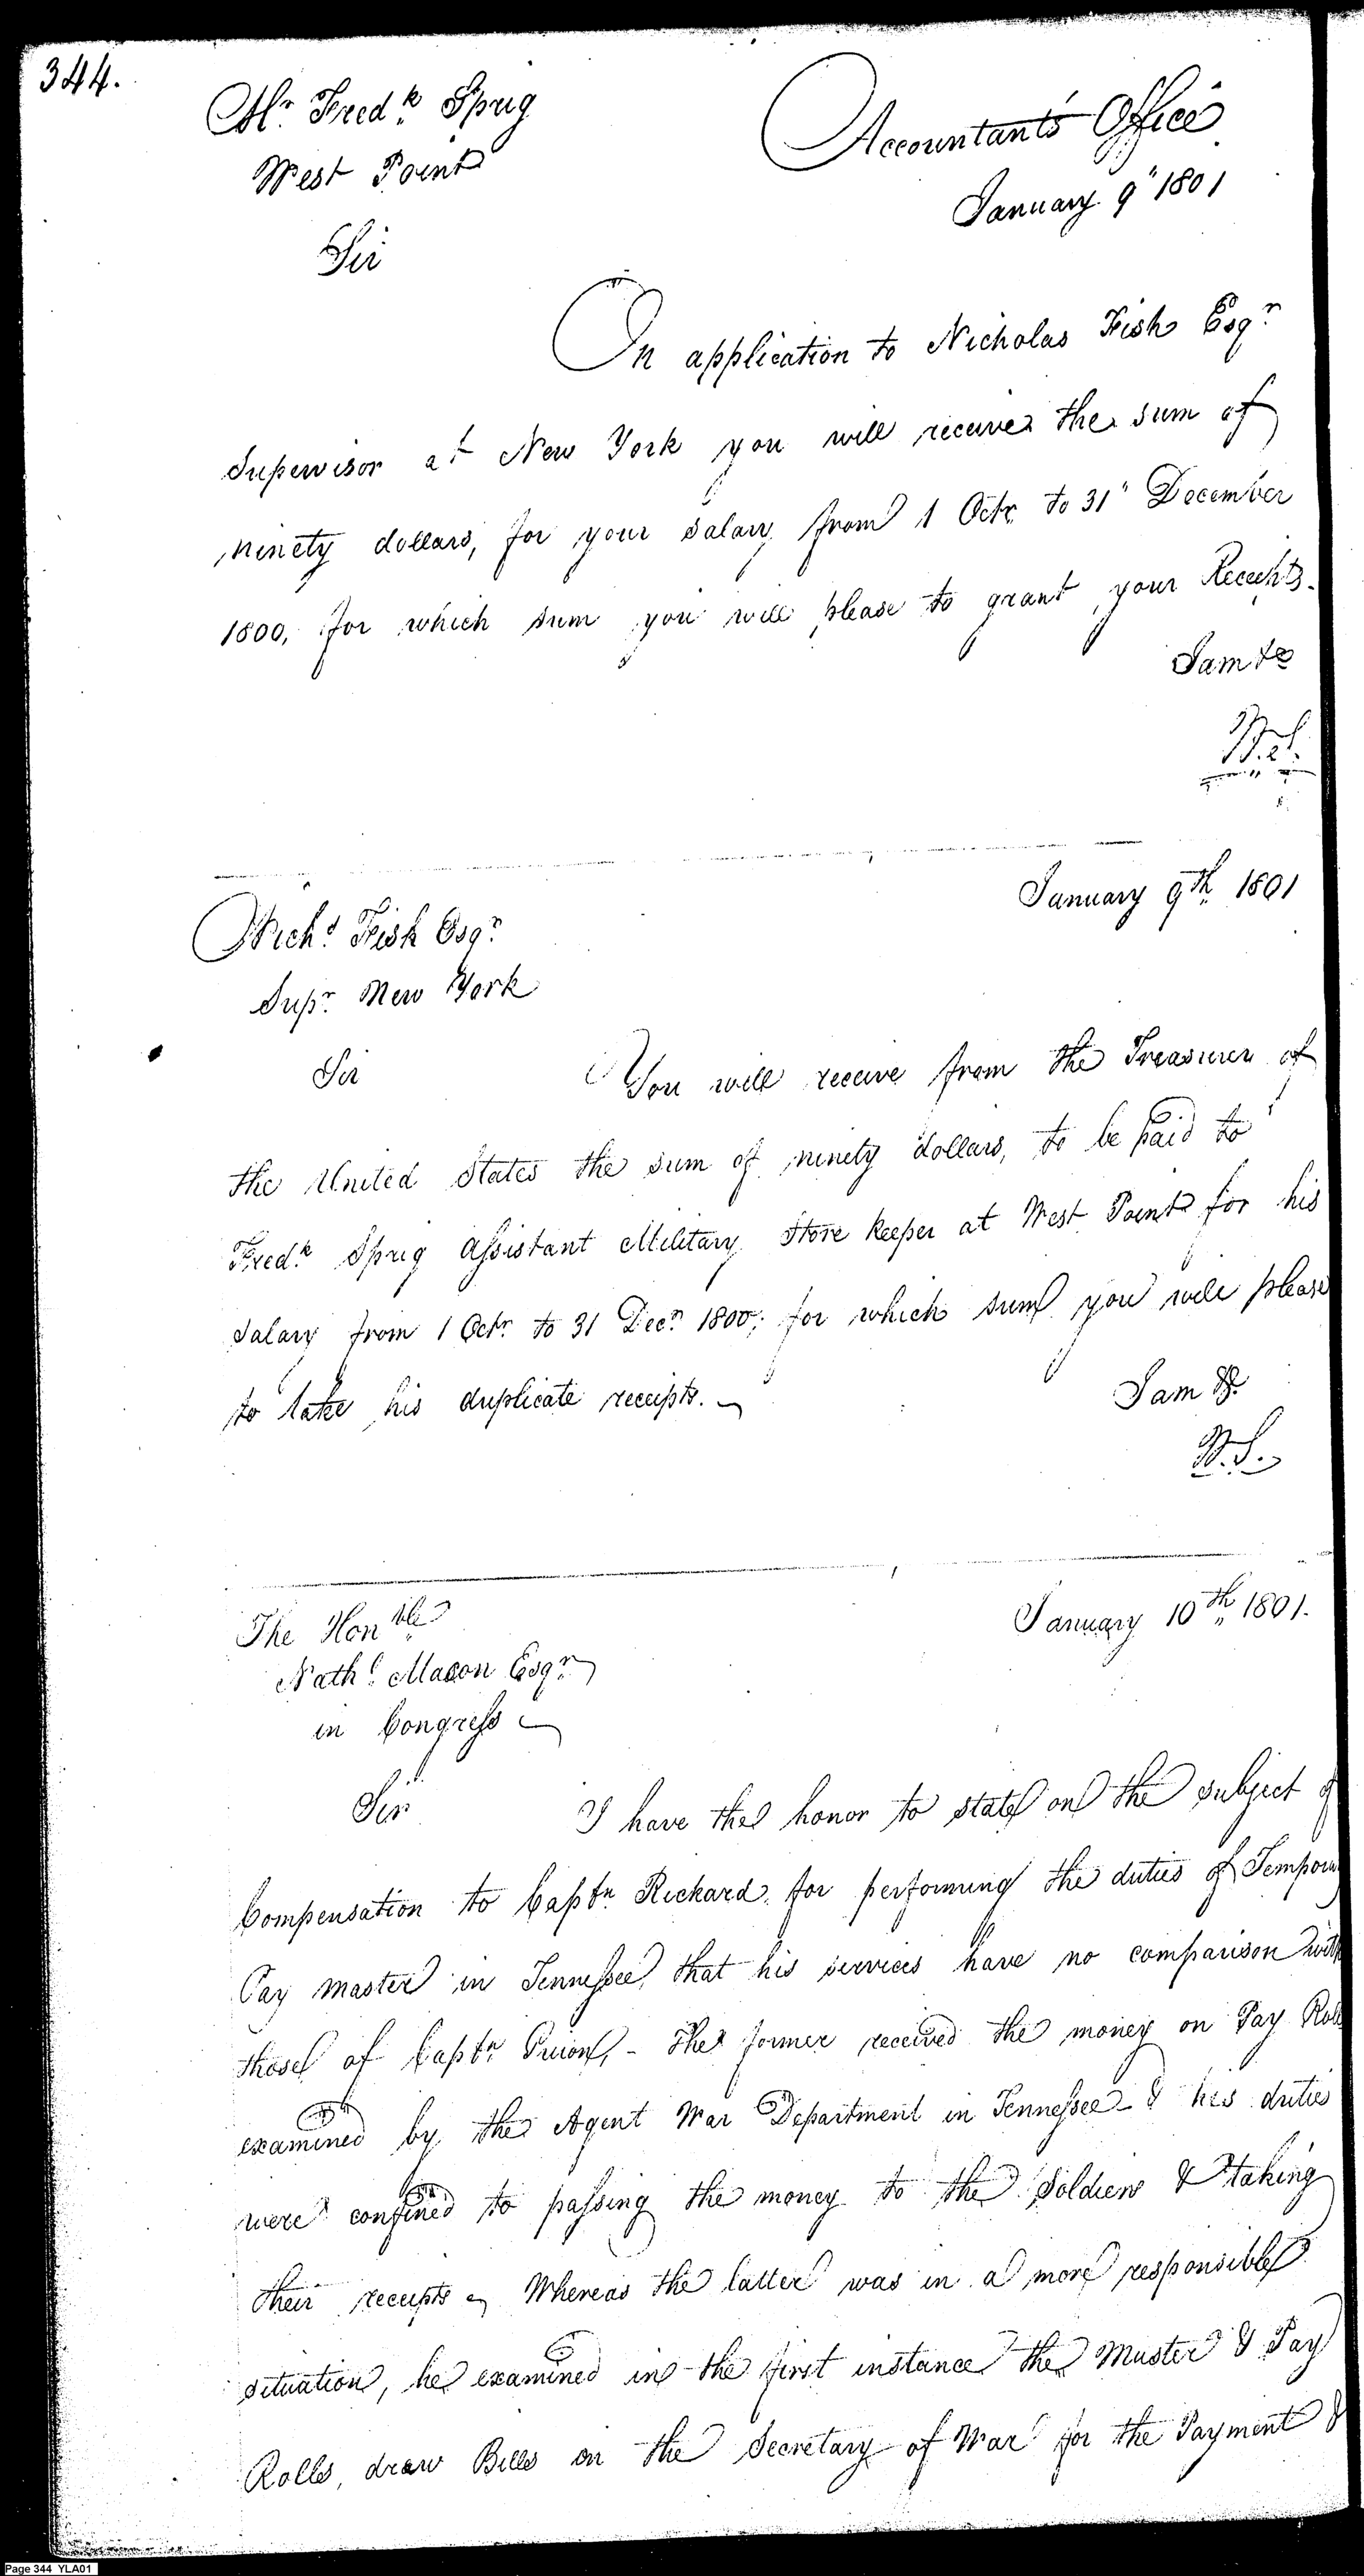 344.
Mr. Fredk. Sprig
Accountants Office
West Point
January 9" 1801
Sir
On application to Nicholas Fish Esqr.
Supervisor at New York you will receive the sum of
ninety dollars, for your salary from 1 Octr. to 31" December
1800, for which sum you will please to grant your Receipts.
I am &c
W. S.
January 9th. 1801
Nichs. Fish Esqr.
Supr. New York
Sir You will receive from the Treasurer of
the United States the sum of ninety dollars, to be paid to
Fredk. Sprig Assistant Military Store keeper at West Point for his
salary from 1 Octr. to 31 Decr. 1800; for which sum you will please
to take his duplicate receipts.
I am &.
W. S.
The Honble
January 10th. 1801.
Nathl. Macon Esqr
in Congress
Sir I have the honor to state on the subject of
Compensation to Captn. Rickard, for performing the duties of Tempora
Pay master in Tennessee, that his services have no comparison with
those of Captn. Prior, - The former received the money on Pay Rolls
examined by the Agent War Department in Tennessee - & his duties
were confined to passing the money to the Soldiers & taking
their receipts Whereas the latter was in a more responsible
situation, he examined in the first instance the Muster & Pay
Rolls, draw Bills on the Secretary of War for the Payment &
Page 344 YLA01